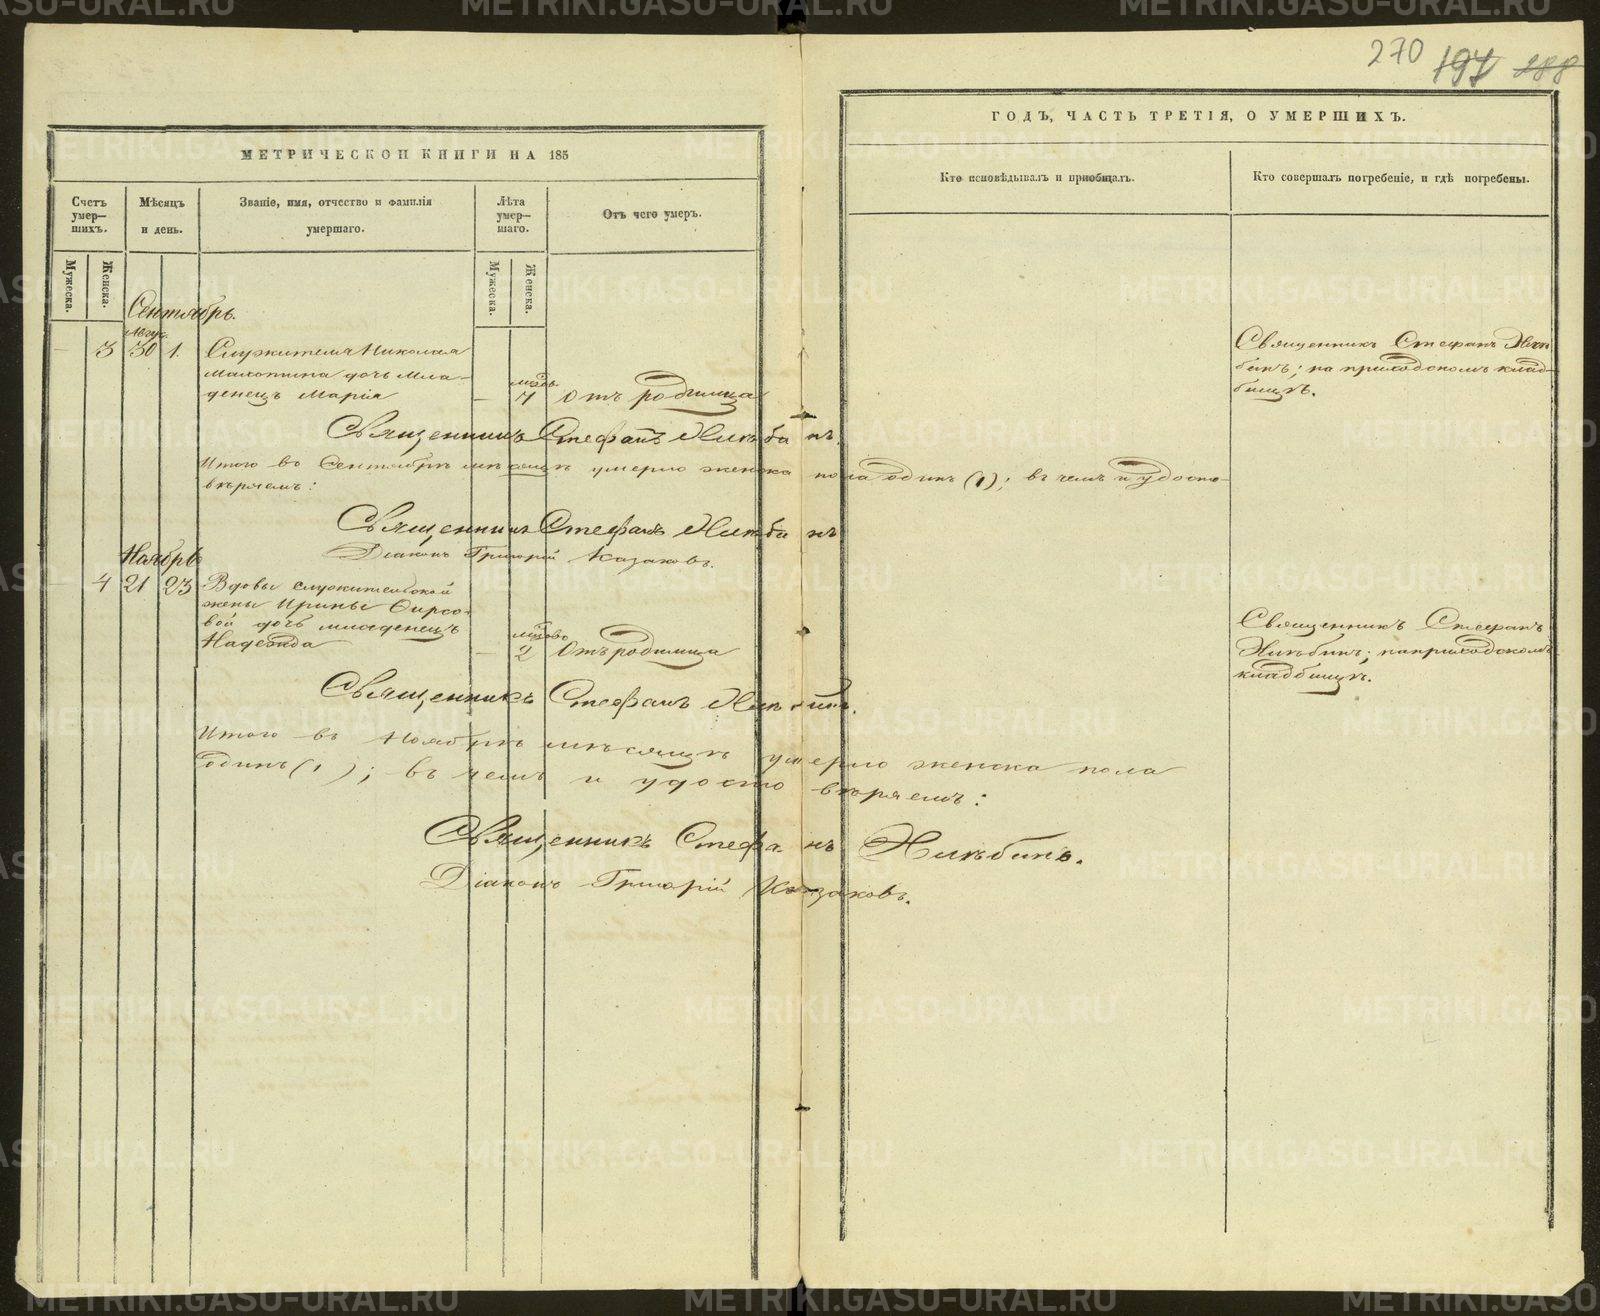 270 197 188
МЕТРИЧЕСКОЙ КНИГИ НА 185
ГОДЪ, ЧАСТЬ ТРЕТІЯ, О УМЕРШИХЪ.
Счетъ умер-шихъ.
Мѣсяцъ и день.
Званіе, имя, отчество и фамилія умершаго.
Лѣта умер-шаго.
Отъ чего умеръ.
Кто исповѣдывалъ и пріобщалъ.
Кто совершалъ погребеніе, и гдѣ погребены.
Мужеска.
Женска.
Мужеска.
Женска.
Сентябрь.
Авгус.
3 30 1. Служителя Николая
дочь Мла-
денецъ Марія
7 отъ родимца
Священникъ Стефанъ
; на приходскомъ клад-
бищѣ.
Священникъ Стефанъ
Итого въ Сентябрѣ мѣсяцѣ умерло женска пола одинъ (1); въ чемъ и удосто-
вѣряемъ:
Священникъ Стефанъ
Діаконъ Григорій Казаковъ.
Ноябрь
4 21 23 Вдовы служительской
жены Ирины Фирсо-
вой дочь младенецъ
Надежда
2 Отъ родимца
Священникъ Стефанъ
; на приходскомъ
кладбищѣ.
Священникъ Стефанъ
Итого въ Ноябрѣ мѣсяцѣ умерло женска пола
одинъ (1); въ чемъ и удостовѣряемъ:
Священникъ Стефанъ
Діаконъ Григорій Казаковъ.
METRIKI.GASO-URAL.RU